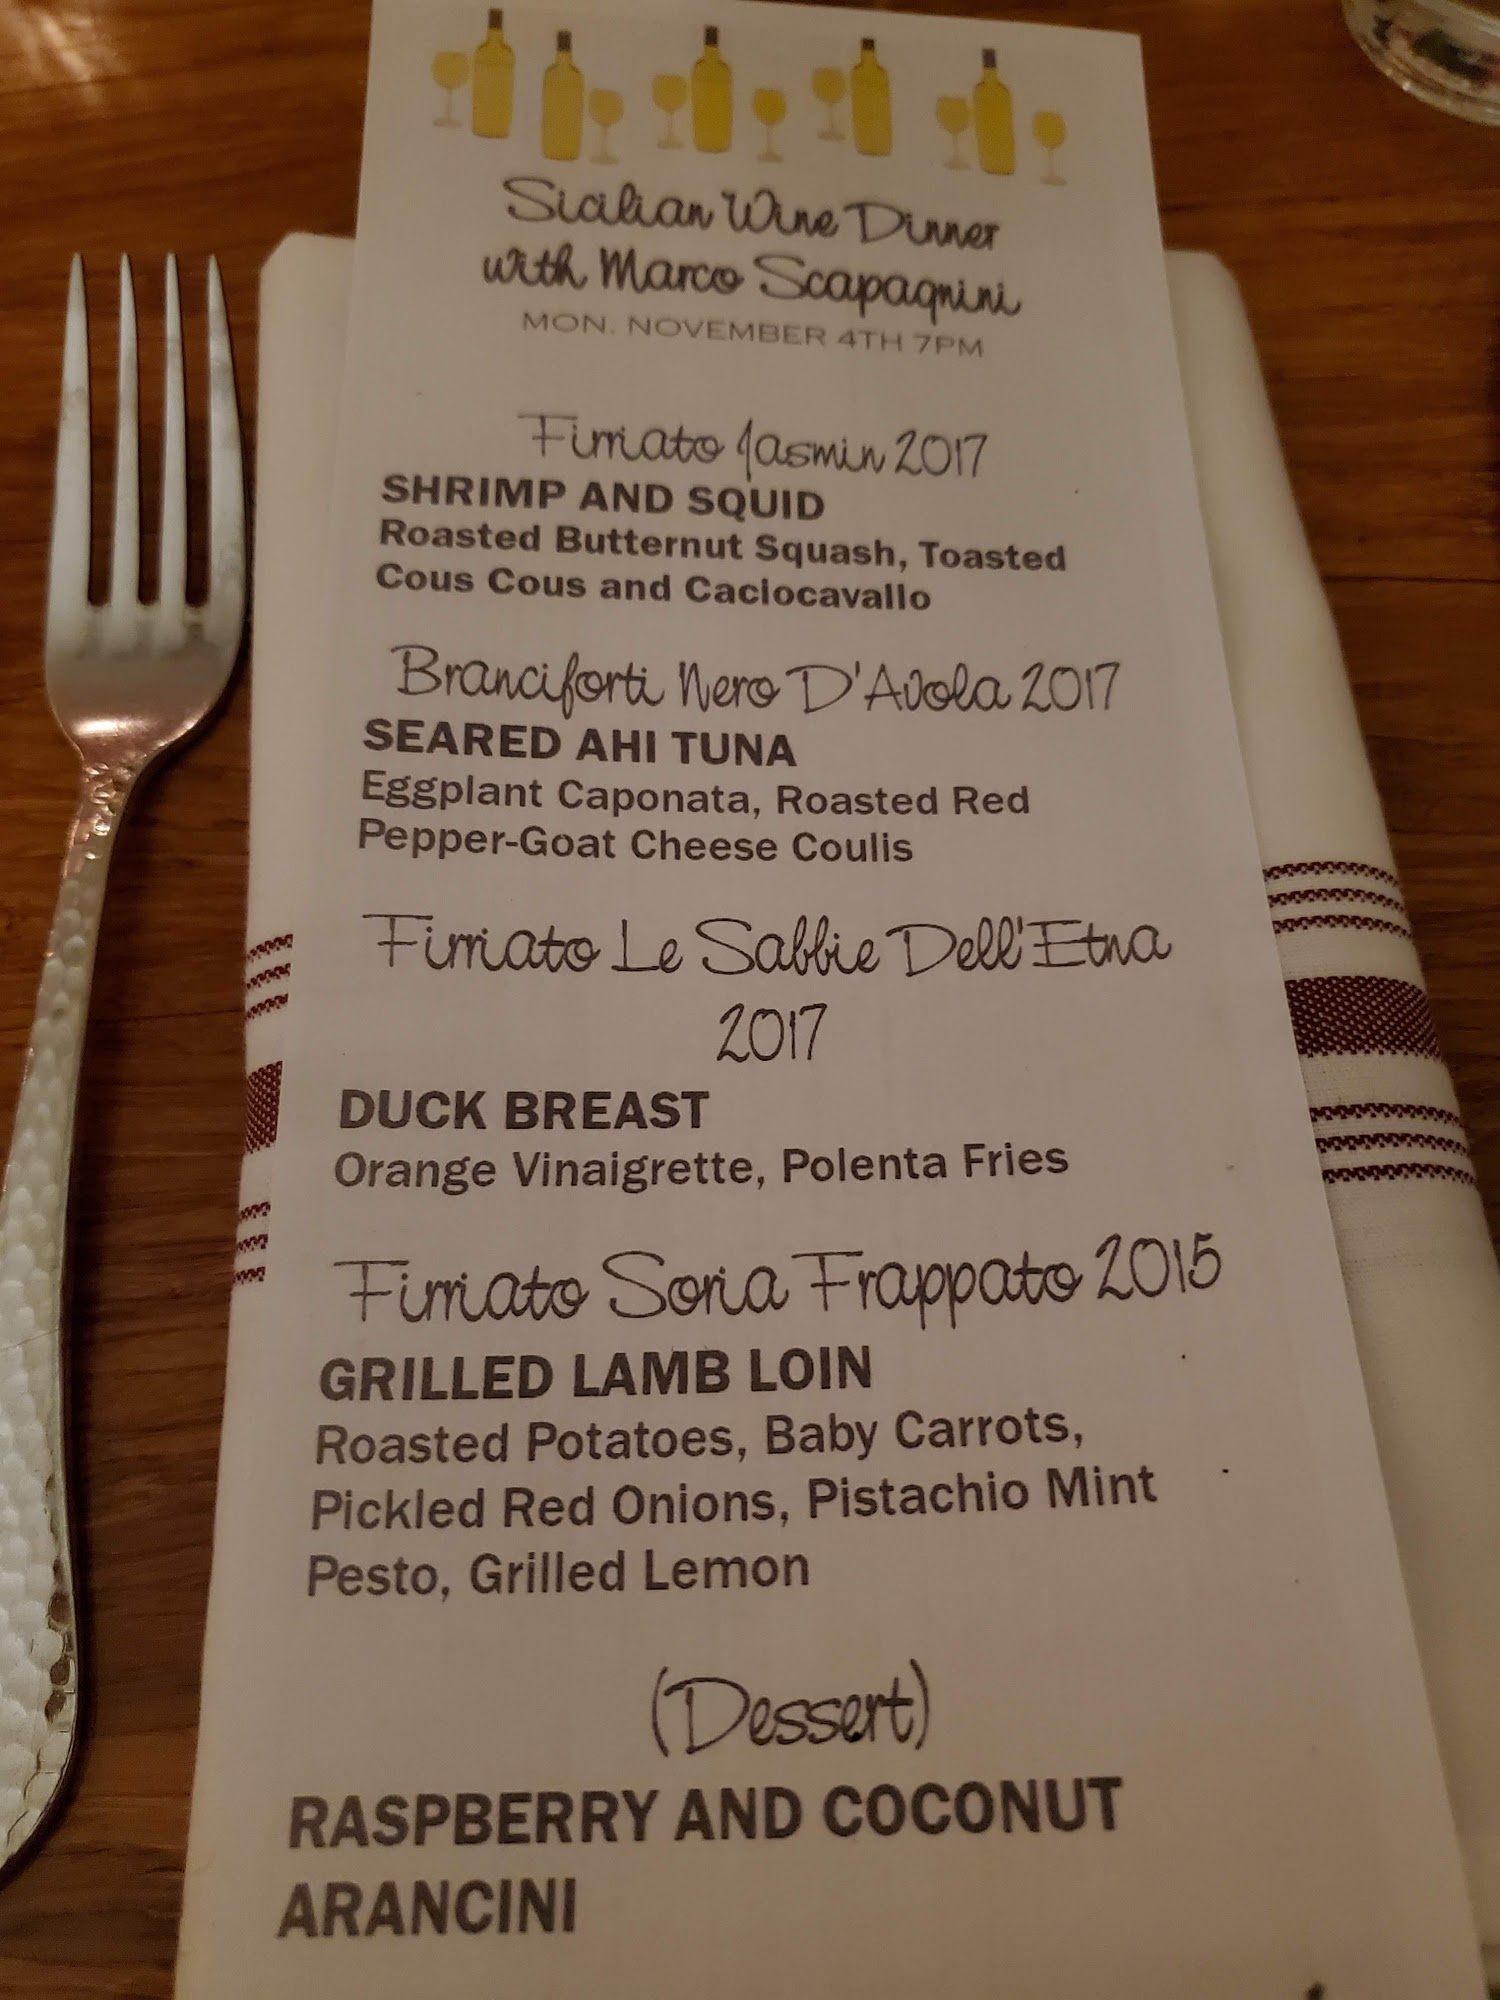 Sicilian Wine Dinner
with Marco Scapagnini
MON. NOVEMBER 4TH 7PM
Firriato Jasmin 2017
SHRIMP AND SQUID
Roasted Butternut Squash, Toasted
Cous Cous and Caciocavallo
Branciforti Nero D'Avola 2017
SEARED AHI TUNA
Eggplant Caponata, Roasted Red
Pepper-Goat Cheese Coulis
Firriato Le Sabbie Dell'Etna
2017
DUCK BREAST
Orange Vinaigrette, Polenta Fries
Firriato Soria Frappato 2015
GRILLED LAMB LOIN
Roasted Potatoes, Baby Carrots,
Pickled Red Onions, Pistachio Mint
Pesto, Grilled Lemon
(Dessert)
RASPBERRY AND COCONUT
ARANCINI